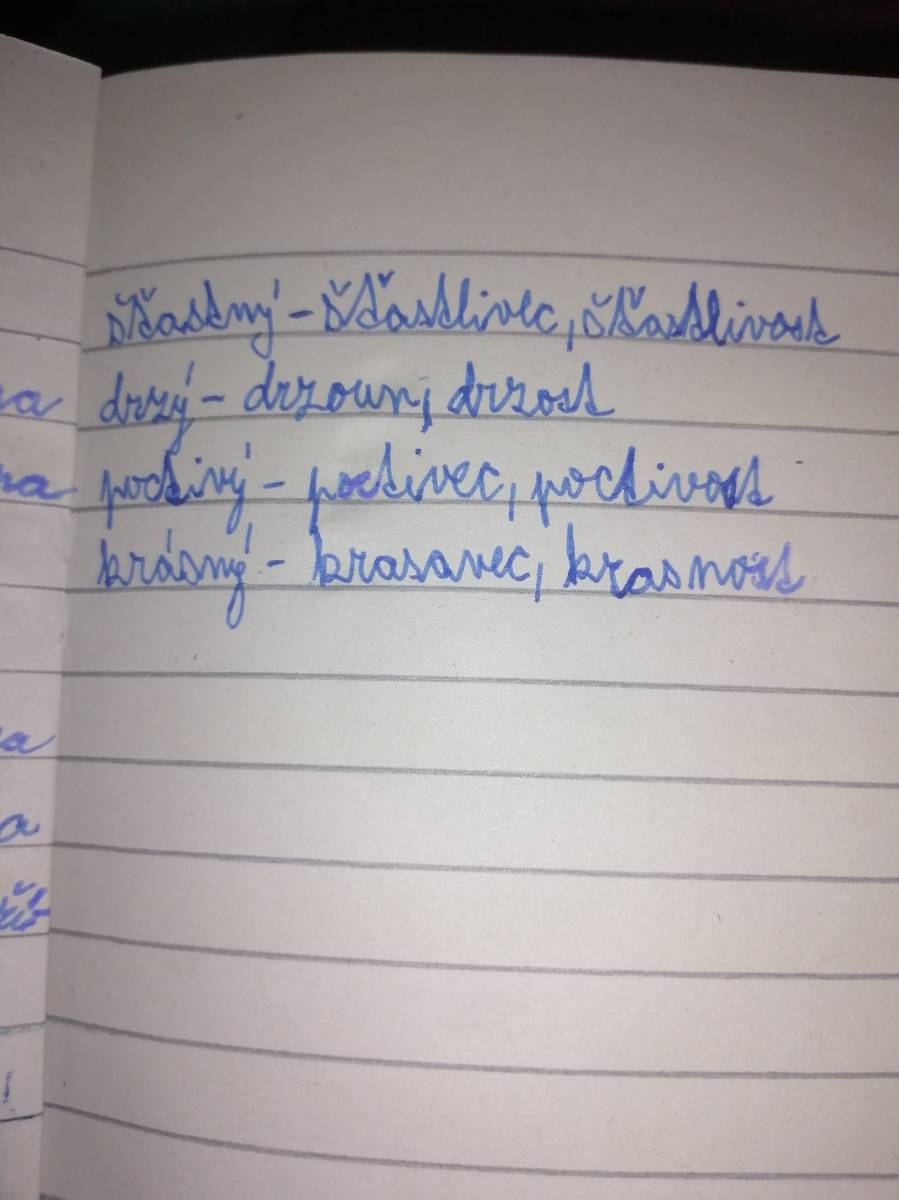 šťastný - šťastlivec, šťastlivost
a drzý - drzoun, drzost
na poctivý - poctivec, poctivost
krásný - krasavec, krasnost
a
a